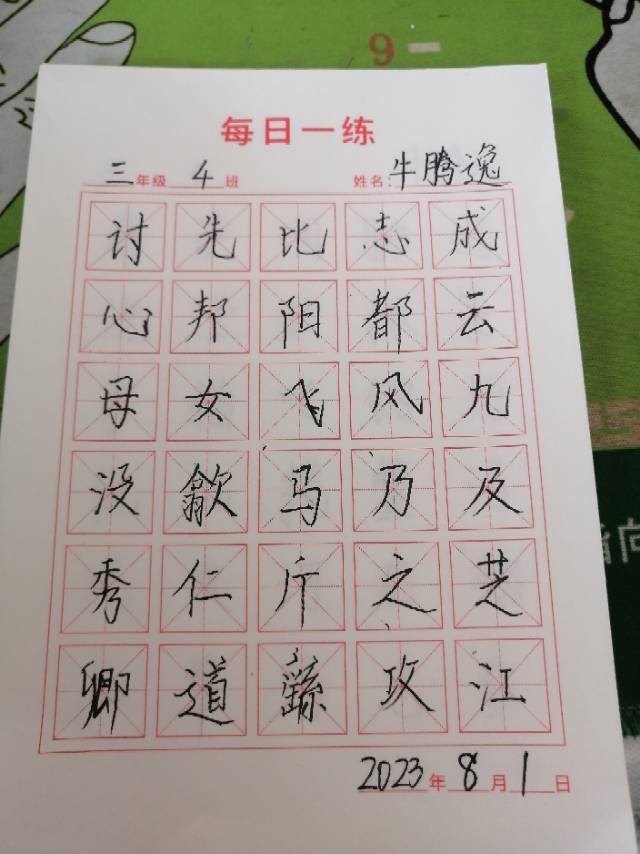 9
每日一练
三年级 4 班 姓名:牛腾逸
讨先比志成
心邦阳都云
母女飞风九
没歙马乃及
秀仁斤之芝
卿道攻江
2023年8月1日
指向